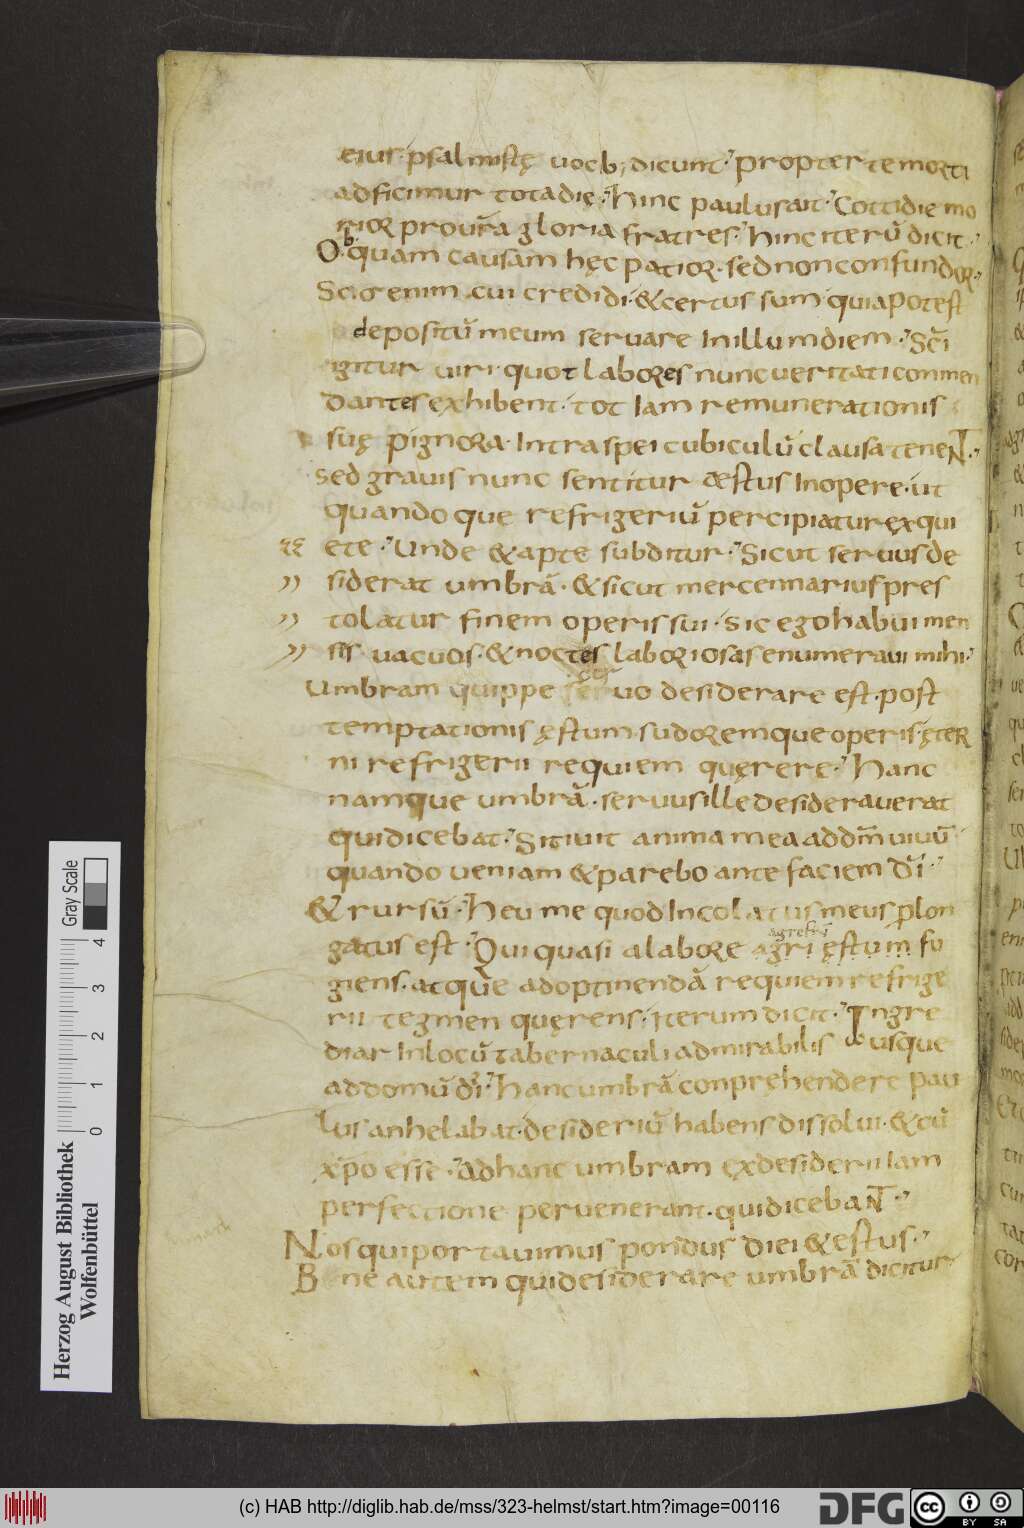 eius psalmistę uocib; dicunt. Propter te morti
adficimur tota die. Hinc paulus ait. Cottidie mo
rior pro ur̄a gloria fratres. Hinc iterū dicit.
Ob quam causam hęc patior. sed non confundor.
Scio enim cui credidi. & certus sum quia potest
depositū meum seruare in illum diem. Sc̄i
igitur uiri quot labores nunc ueritati conmen
dantes exhibent. tot iam remunerationis
suę pignora intra spei cubiculū clausa tenent.
Sed grauis nunc sentitur aestus in opere. ut
quando que refrigeriū percipiatur ex qui
ete. Unde & apte subditur. Sicut seruus de
siderat umbrā. & sicut mercennarius pres
tolatur finem operis sui. sic ego habui men
ses uacuos. & noctes laboriosas enumeraui mihi.
Umbram quippe seruo desiderare est. post
temptationis ęstum sudoremque operis. ęter
ni refrigerii requiem quęrere. Hanc
namque umbrā. seruus ille desiderauerat
qui dicebat. Sitiuit anima mea ad dm̄ uiuū
quando ueniam & parebo ante faciem dī.
& rursū. Heu me quod incolatus meus plon
gatus est. Qui quasi a labore agri ęstum fu
giens. atque adoptinendā requiem refrige
rii tegmen quęrens. iterum dicit. Ingre
diar in locū tabernaculi admirabilis usque
ad domū dī. Hanc umbrā conpręhendere pau
lus anhelabat. desideriū habens dissolui. & cū
xp̄o esse. Ad hanc umbram ex desiderii iam
perfectione peruenerant. qui dicebant.
Nos qui portauimus pondus diei & estus.
Bene autem qui desiderare umbrā dicitur
Gray Scale
4
3
2
1
0
Herzog August Bibliothek
Wolfenbüttel
(c) HAB http://diglib.hab.de/mss/323-helmst/start.htm?image=00116
DFG
cc BY SA